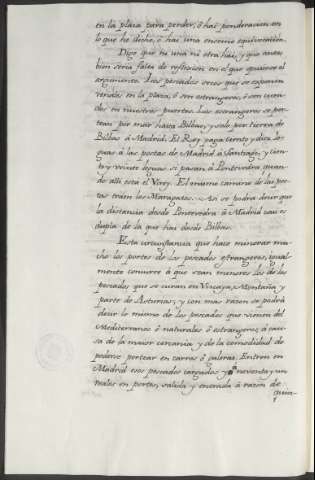 en la plaza para perder, ó hai ponderacion en
lo que he dicho, ó hai una enorme equivocacion.
Digo que ni una ni otra hai, y que antes
bien seria falta de reflexion en el que quisiere el
argumento. Los pescados secos que se expenen
vendas en la plaza, ó son estrangeros, ó son curados
en nuestros puertos. Los estrangeros se portean
por mar hasta Bilbao, y solo por tierra de
Bilbao á Madrid. El Rey paga ciento y diez leguas
á las postas de Madrid á Santiago, y ciento
y veinte leguas si pasan á Pontevedra quando
alli está el Virey. El mismo camino de las postas
traen los Maragatos. Asi se podrá decir que
la distancia desde Pontevedra á Madrid casi es
dupla de la que hai desde Bilbao.
Esta circunstancia que hace minorar mucho
los portes de los pescados estrangeros, igualmente
concurre á que sean menores los de los
pescados que se curan en Vizcaya, Montaña y
parte de Asturias; y con mas razon se podrá
decir lo mismo de los pescados que vienen del
Mediterraneo ó naturales ó estrangeros, á causa
de la maior cercania y de la comodidad de
poderse portear en carros ó galeras. Entren en
Madrid esos pescados cargados y noventa y un
reales en portes, salida y entrada á razon de
quin-